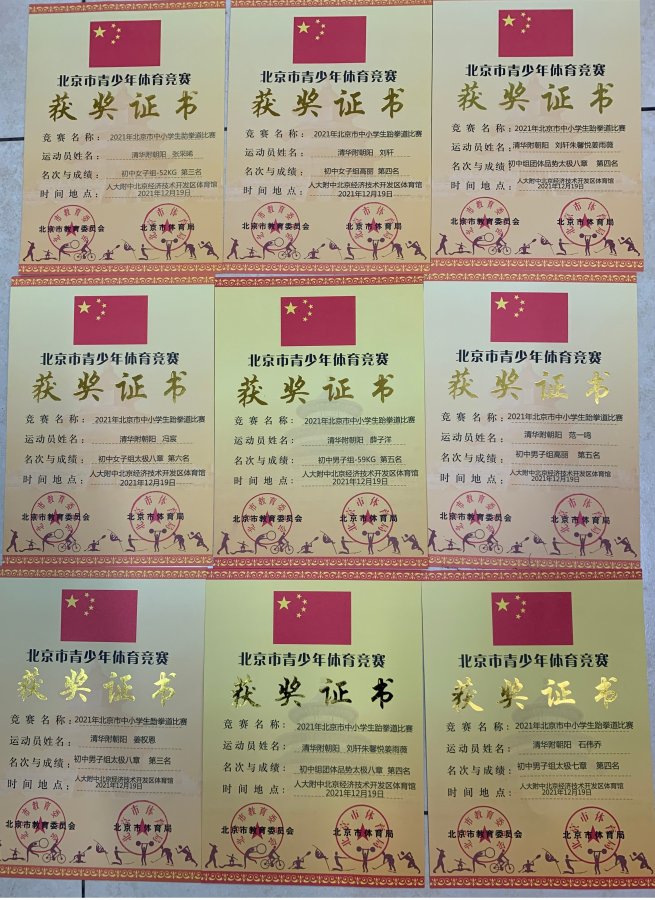 北京市青少年体育竞赛
获奖证书
竞赛名称：2021年北京市中小学生跆拳道比赛
运动员姓名：清华附朝阳 张宋晞
名次与成绩：初中女子组-52KG 第三名
时间地点：人大附中北京经济技术开发区体育馆
2021年12月19日
北京市教育委员会 北京市体育局
北京市青少年体育竞赛
获奖证书
竞赛名称：2021年北京市中小学生跆拳道比赛
运动员姓名：清华附朝阳 刘轩
名次与成绩：初中女子组高丽 第四名
时间地点：人大附中北京经济技术开发区体育馆
2021年12月19日
北京市教育委员会 北京市体育局
北京市青少年体育竞赛
获奖证书
竞赛名称：2021年北京市中小学生跆拳道比赛
运动员姓名：清华附朝阳 刘轩朱馨悦姜雨薇
名次与成绩：初中组团体品势太极八章 第四名
时间地点：人大附中北京经济技术开发区体育馆
2021年12月19日
北京市教育委员会 北京市体育局
北京市青少年体育竞赛
获奖证书
竞赛名称：2021年北京市中小学生跆拳道比赛
运动员姓名：清华附朝阳 冯宸
名次与成绩：初中女子组太极八章 第六名
时间地点：人大附中北京经济技术开发区体育馆
2021年12月19日
北京市教育委员会 北京市体育局
北京市青少年体育竞赛
获奖证书
竞赛名称：2021年北京市中小学生跆拳道比赛
运动员姓名：清华附朝阳 薛子洋
名次与成绩：初中男子组-59KG 第五名
时间地点：人大附中北京经济技术开发区体育馆
2021年12月19日
北京市教育委员会 北京市体育局
北京市青少年体育竞赛
获奖证书
竞赛名称：2021年北京市中小学生跆拳道比赛
运动员姓名：清华附朝阳 范一鸣
名次与成绩：初中男子组高丽 第五名
时间地点：人大附中北京经济技术开发区体育馆
2021年12月19日
北京市教育委员会 北京市体育局
北京市青少年体育竞赛
获奖证书
竞赛名称：2021年北京市中小学生跆拳道比赛
运动员姓名：清华附朝阳 姜权恩
名次与成绩：初中男子组太极八章 第三名
时间地点：人大附中北京经济技术开发区体育馆
2021年12月19日
北京市教育委员会 北京市体育局
北京市青少年体育竞赛
获奖证书
竞赛名称：2021年北京市中小学生跆拳道比赛
运动员姓名：清华附朝阳 刘轩朱馨悦姜雨薇
名次与成绩：初中组团体品势太极八章 第四名
时间地点：人大附中北京经济技术开发区体育馆
2021年12月19日
北京市教育委员会 北京市体育局
北京市青少年体育竞赛
获奖证书
竞赛名称：2021年北京市中小学生跆拳道比赛
运动员姓名：清华附朝阳 石伟乔
名次与成绩：初中男子组太极七章 第四名
时间地点：人大附中北京经济技术开发区体育馆
2021年12月19日
北京市教育委员会 北京市体育局